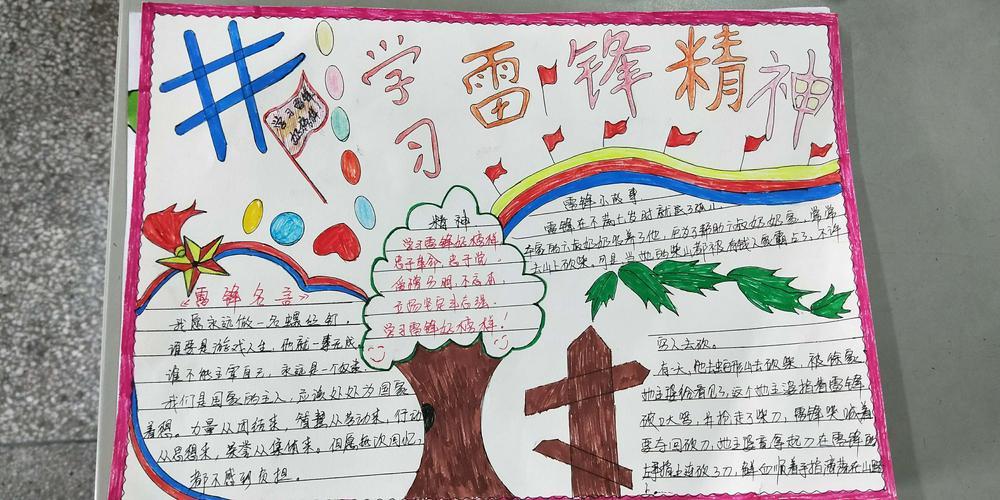 #
学习雷锋精神
学习雷锋
精神
学习雷锋好榜样
忠于革命忠于党
爱憎分明不忘本，
立场坚定斗志强
学习雷锋好榜样！
《雷锋名言》
我愿永远做一名螺丝钉．
谁要是游戏人生，他就一事无成．
谁不能主宰自己，永远是一个奴隶
我们是国家的主人，应该处处为国家
着想。力量从团结来，智慧从劳动来，行动
从思想来，荣誉从集体来。
都不感到负担．
雷锋小故事
雷锋在不满七岁时就成了孤儿
六叔奶奶收养了他，
去山上砍柴，可是当地的柴山都被有钱人家霸占了，不许
穷人去砍．
有一天，他去蛇形山去砍柴，被徐家
地主婆看见了，这个地主婆指着雷锋
破口大骂，并抢走了柴刀，雷锋哭喊着
要夺回砍刀，地主婆竟拿起刀在雷锋的
上连砍了刀，鲜血顺着手指滴落在山路
上．